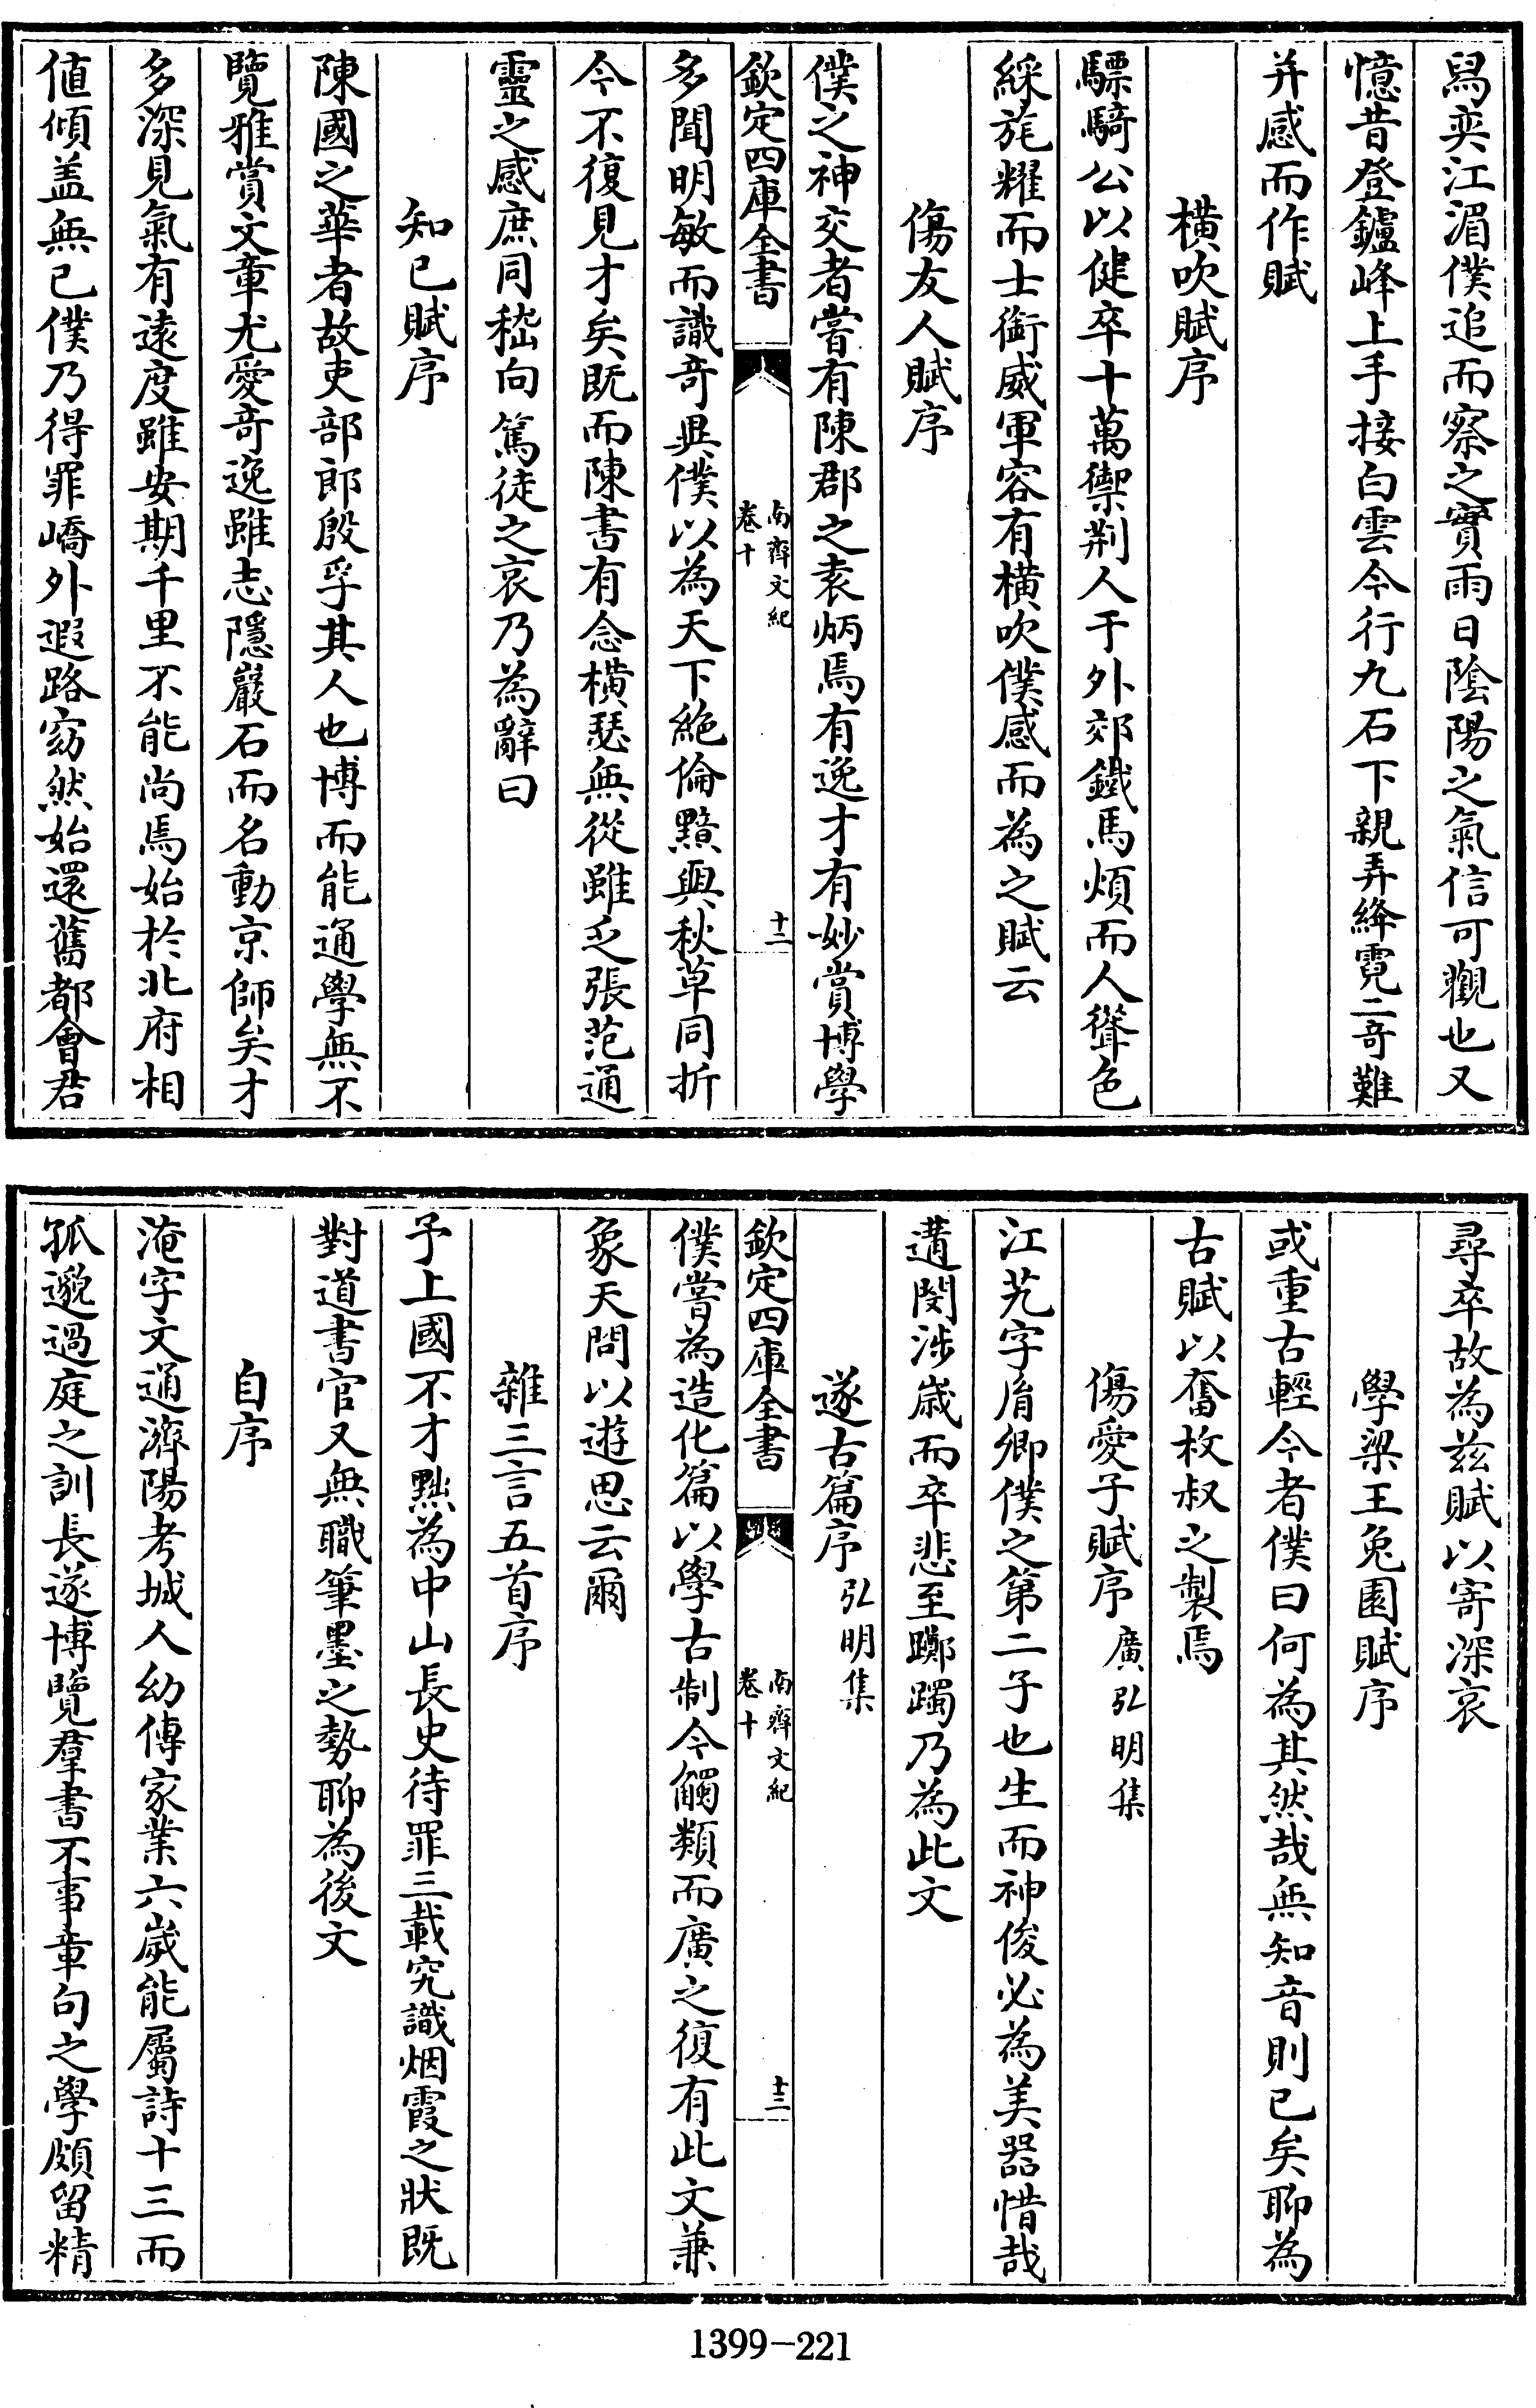 舄奕江湄僕追而察之實雨日隂陽之氣信可觀也又
憶昔登鑪峰上手接白雲今行九石下親弄絳霓二竒難
并感而作賦
橫吹賦序
驃騎公以健卒十萬禦荆人于外郊鐵馬煩而人聳色
綵旄耀而士銜威軍容有橫吹僕感而為之賦云
傷友人賦序
僕之神交者嘗有陳郡之袁炳焉有逸才有妙賞博學
欽定四庫全書
南齊文紀
卷十
十二
多聞明敏而識竒異僕以為天下絶倫黯與秋草同折
今不復見才矣既而陳書有念橫瑟無從雖乏張范通
靈之感庶同嵇向篤徒之哀乃為辭曰
知已賦序
陳國之華者故吏部郎殷孚其人也博而能通學無不
覽雅賞文章尤愛竒逸雖志隱巖石而名動京師矣才
多深見氣有遠度雖安期千里不能尚焉始於北府相
值傾盖無已僕乃得罪嶠外遐路窈然始還舊都會君
尋卒故為兹賦以寄深哀
學梁王兔園賦序
或重古輕今者僕曰何為其然哉無知音則已矣聊為
古賦以奮枚叔之製焉
傷愛子賦序 廣弘明集
江艽字胤卿僕之第二子也生而神俊必為美器惜哉
遘閔涉歲而卒悲至躑躅乃為此文
遂古篇序 弘明集
欽定四庫全書
南齊文紀
卷十
十三
僕嘗為造化篇以學古制今觸類而廣之復有此文兼
象天問以遊思云爾
雜三言五首序
予上國不才黜為中山長史待罪三載究識烟霞之狀既
對道書官又無職筆墨之勢聊為後文
自序
淹字文通濟陽考城人幼傳家業六歲能屬詩十三而
孤邈過庭之訓長遂博覽羣書不事章句之學頗留精
1399-221